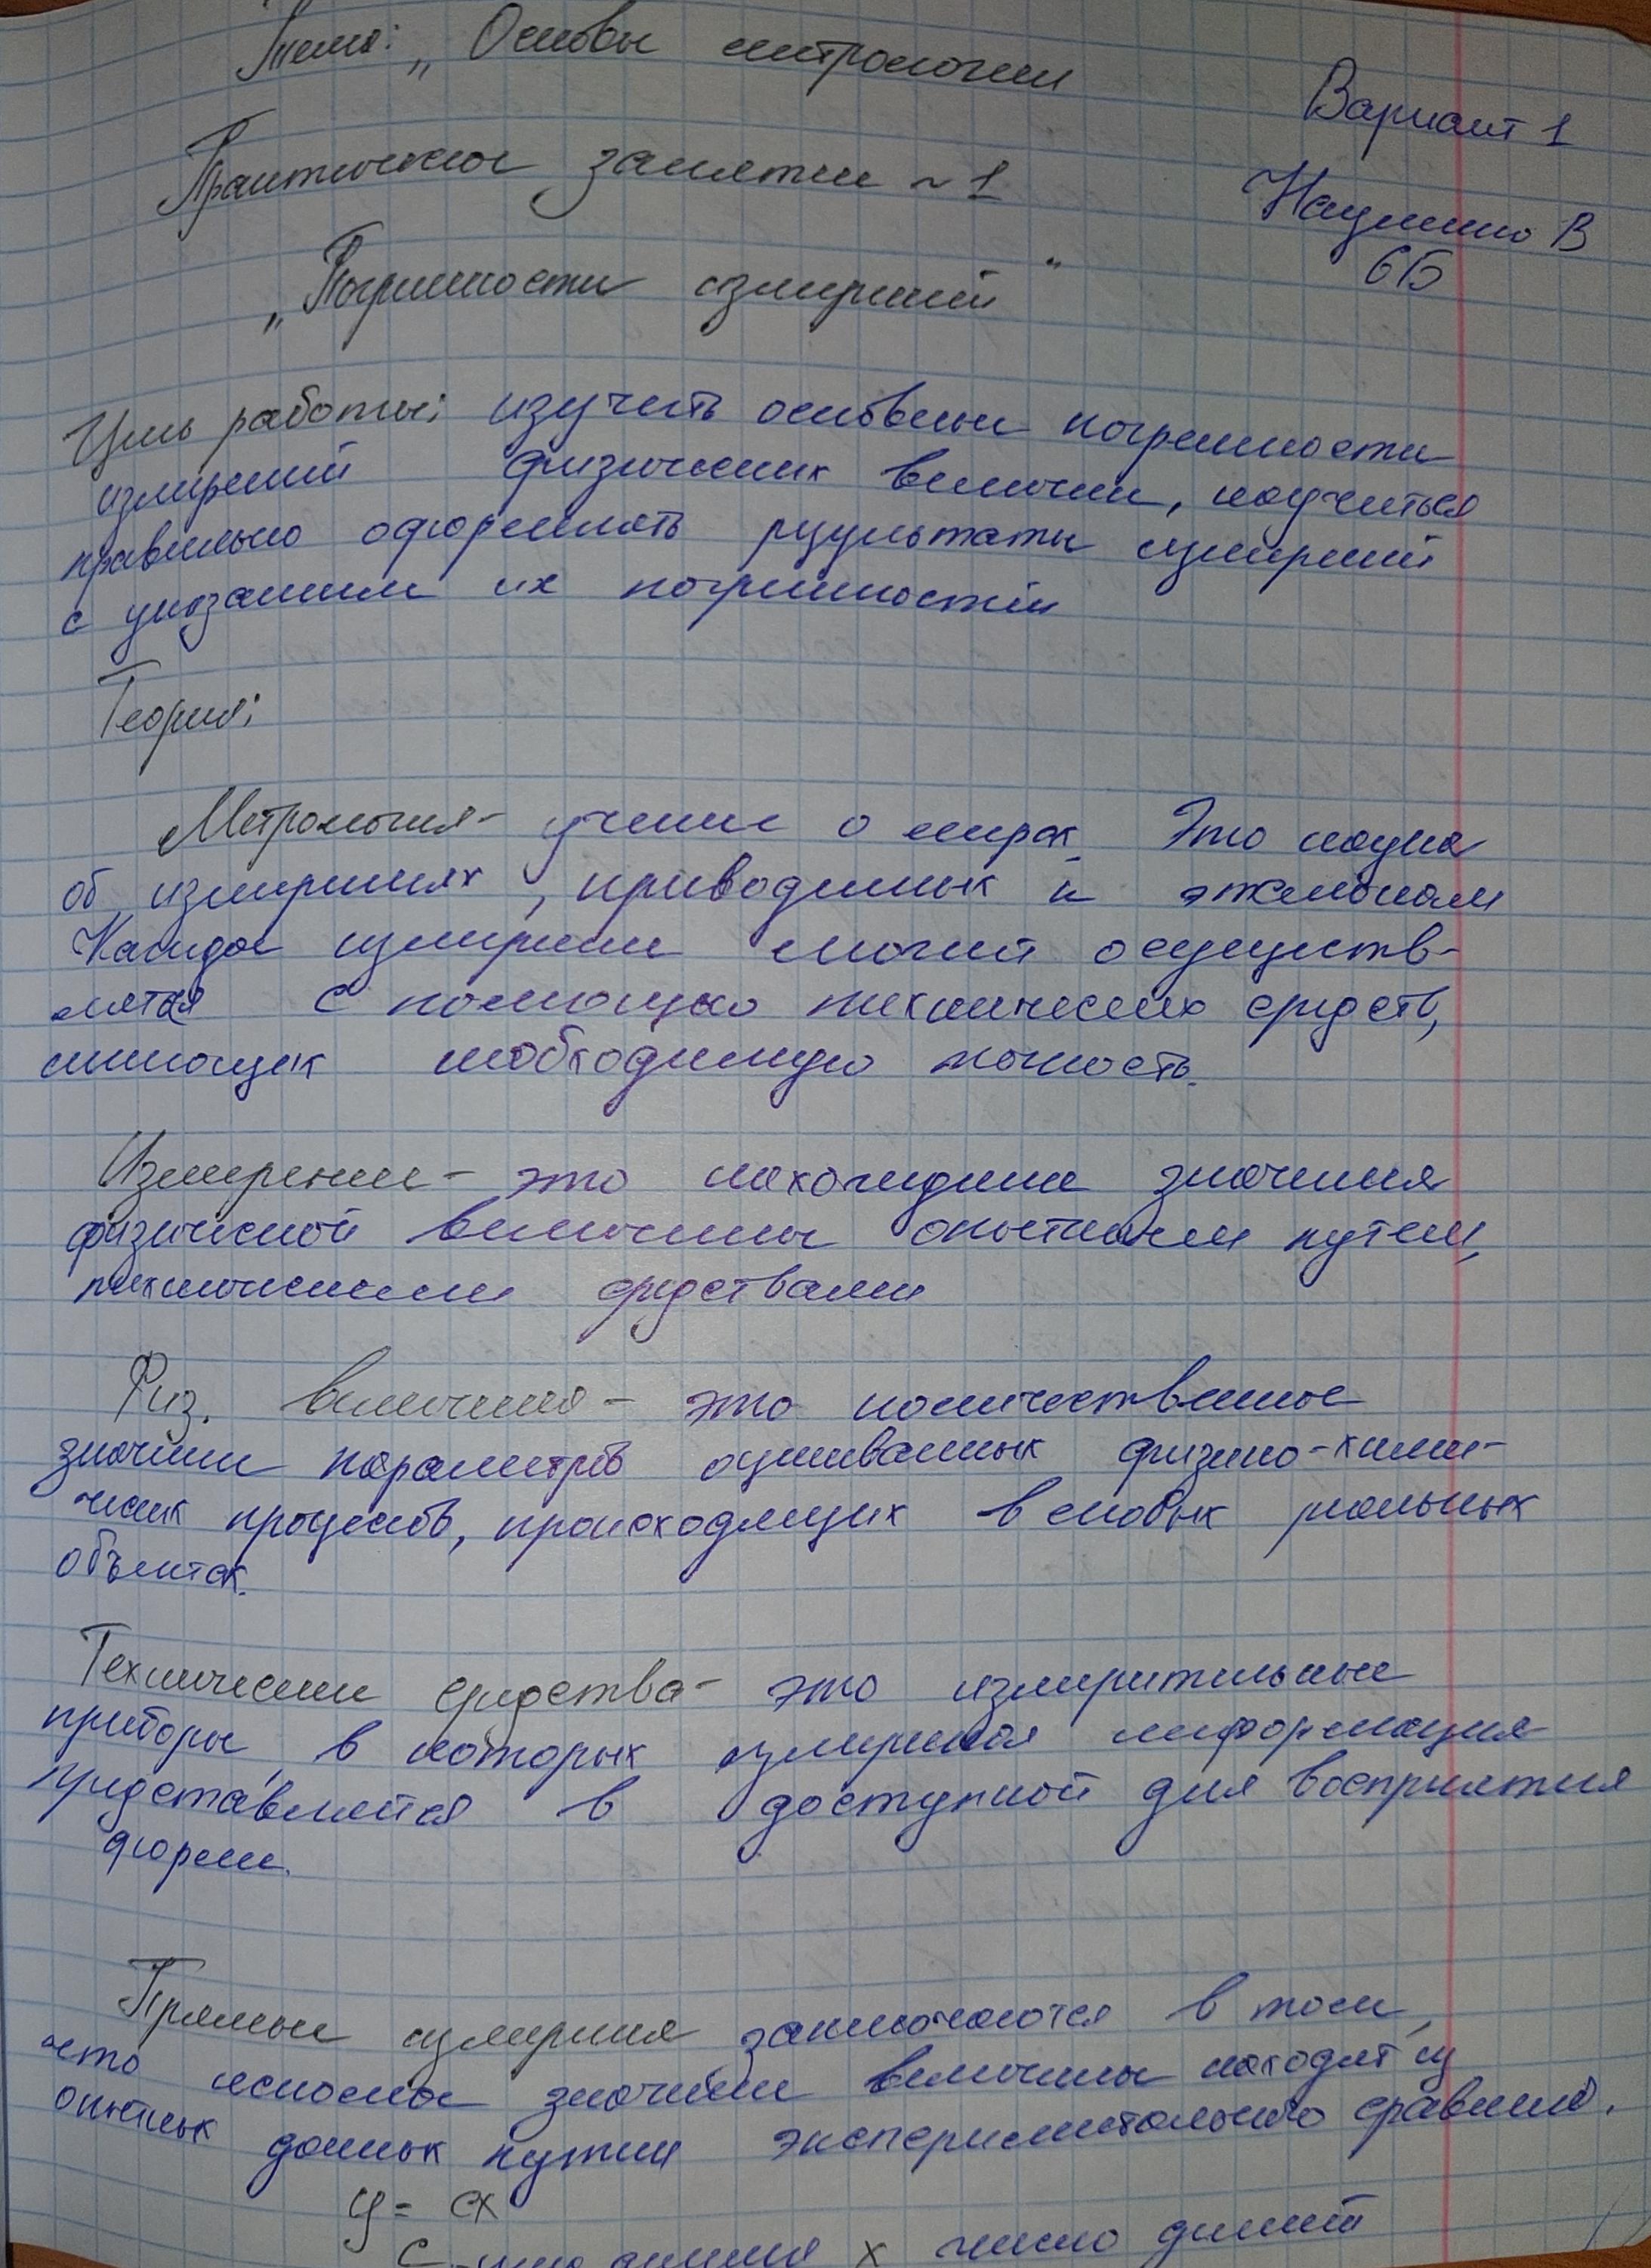 Тема: „Основы метрологии
Вариант 1
Практическое занятие ~ 1
Науменко В
6Б
„Погрешности измерений"
Цель работы: изучить основные погрешности
измерений физических величин, научиться
правильно оформлять результаты измерений
с указанием их погрешностей
Теория:
Метрология - учение о мерах. Это наука
об измерениях, приводимых к эталонам
Каждое измерение может осуществ-
лятся с помощью технических средств,
имеющих необходимую точность.
Измерение - это нахождение значения
физической величины опытным путем,
техническими средствами
Физ. величина - это количественное
значение параметров оцениваемых физико-хими-
ческих процессов, происходящих в новых реальных
объектах.
Технические средства - это измерительные
приборы, в которых измеренная информация
представляется в доступной для восприятия
форме.
Прямые измерения заключаются в том,
что искомое значение величины находят из
опытных данных путем экспериментального сравнения.
y = cx
С - цена деления x число делений